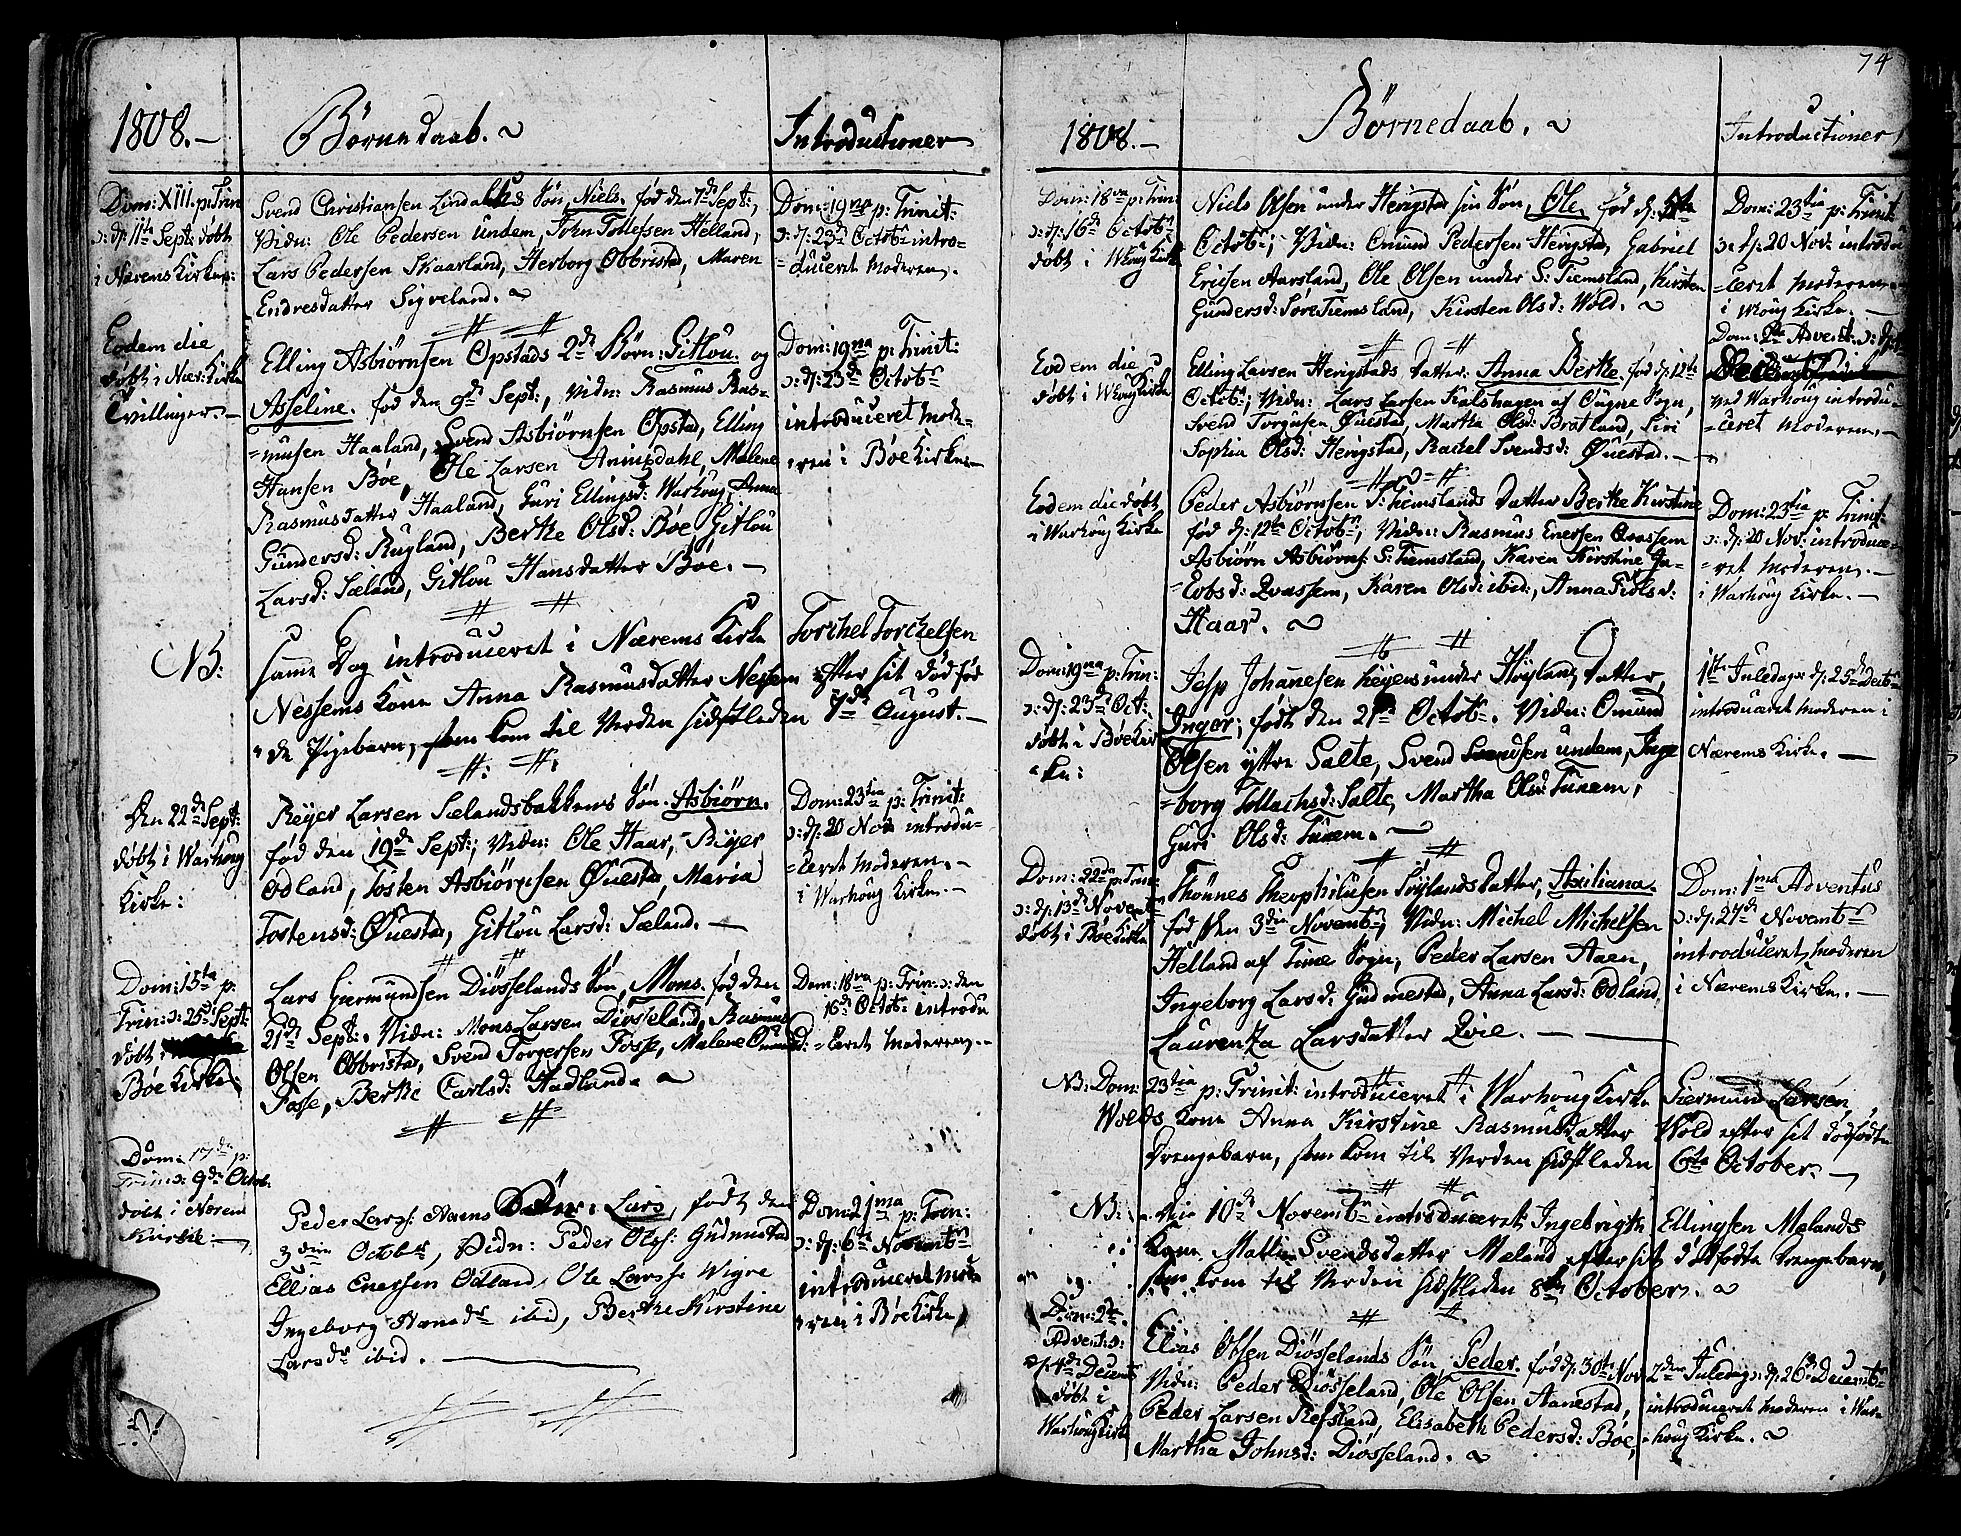 1808.—
Børnedaab. ~
Introductioner
Dom: XIII. p: Trin
ɔ: d: 11te Sept: døbt
i Nærems Kirke:
Svend Christiansen Søn, Niels. fød den 7de Sept:,
Vidn: Ole Pedersen Undem, John Tollefsen Helland,
Lars Pedersen Skaarland, Herborg Obbrestad, Maren
Endresdatter Sigveland. ~
Dom: 19na p: Trinit:
ɔ: d: 23de Octobr intro-
=duceret Moderen.
Eodem die
døbt i Nær: Kirke
Tvillinger.—
Elling Asbiørnsen Opstads 2de Børn: Gitlou. og
Asseline. fød den 9de Sept:, Vidn: Rasmus Ras-
=musen Haaland, Svend Asbiørnsen Opstad, Elling
Hansen Bøe, Ole Larsen Anisdahl, Malene
Rasmusdatter Haaland, Guri Ellingsd: Warhoug, Anna
Gundersd: Rugland, Berthe Olsd: Bøe, Gitlou
Larsd: Sæland, Gitlou Hansdatter Bøe. —
Dom: 19na p: Trinit:
ɔ: d: 23de Octobr
introduceret Mode-
=ren i Bøe Kirke—
NB:
samme Dag introduceret i Nærems Kirke Torchel Torchelsen
Nessems Kone Anna Rasmusdatter Nessem efter sit dødfød
=de Pigebarn, som kom til Verden sidstleden 7de August.—
Den 22de Sept:
døbt i Warhoug
Kirke:
Reyer Larsen Sælandsbakkens Søn. Asbiørn.
fød den 19de Sept:, Vidn: Ole Haar, Reyer
Odland, Tosten Asbiørnsen Øuestad, Maria
Tostensd: Øuestad, Gitlou Larsd: Sæland. —
Dom: 23tia p: Trinit:
ɔ: d: 20 Nov: introdu-
=ceret Moderen.—
i Warhoug Kirke.—
Dom: 15ta p:
Trin: ɔ: 25de Sept:
døbt i
Bøe Kirke
Lars Giermundsen Diøsselands Søn, Mons. fød den
21de Sept:. Vidn: Mons Larsen Diøsseland, Rasmus
Olsen Obbrestad, Svend Torgersen Fosse, Malene
Fosse, Berthe Carlsd: Hadland. ~
Dom: 18va p: Trin: ɔ: den
16de Octobr introdu
=ceret Moderen.—
Dom: 17de p:
Trin: ɔ: 9de Octob.
døbt i Nærem
Kirke: —
Peder Larss: Søn: Lars, født den
3die Octobr, Vidn: Peder Olss: Gudmestad
Ellias Enersen Odland, Ole Larss: Wigre
Ingeborg ibid, Berthe Kirstine
Larsdr ibid. —
Dom: 21ma p: Trin:
ɔ: d: 6te Novembr
introduceret Mode
=ren i Bøe Kirke
74
1808.—
Børnedaab. ~
Introductioner
Dom: 18va p: Trin:
ɔ: d: 16de Octobr
døbt i Kirke
Niels Olsen under Herigstad sin Søn, Ole, fød d: 5te
Octobr; Vidn: Omund Pedersen Herigstad, Gabriel
Ericsen Aarsland, Ole Olsen under S: Tiemsland, Kirsten
Gundersd: Søre Tiemsland, Kirsten Olsd: Wold. ~
Dom: 23tia p: Trinit:
ɔ: d: 20 Nov: introdu
=ceret Moderen
i Kirke. —
Eodem die
døbt i Kirke
Elling Larsen Herigstads Datter. Anna Berthe. fød d: 12te
Octobr; Vidn: Lars Larsen af Ougne Sogn,
Svend Torgusen Øuestad, Martha Olsd: Bratland, Siri
Sophia Olsd: Herigstad, Rachel Svendsd: Øuestad. —
Dom: 2da Advent: ɔ: d:
ved Warhoug introdu-
=ceret Moderen.—
Eodem die døbt
i Warhoug Kirke
Peder Asbiørnsen S: Tiemslands Datter Berthe Kirstine
fød d: 12te Octobr; Vidn: Rasmus Enersen Qvassem
Asbiørn Asbiørns: S: Tiemsland, Karen Kirstine Ja-
=cobsd: Qvassem, Karen Olsd: ibid:, Anna
Haar. ~
Dom: 23tia p: Trinit:
ɔ: d: 20 Nov: introduce-
=ret Moderen.—
i Warhoug Kirke.—
Dom: 19na p: Trin:
ɔ: d: 23de Oct:
døbt i Bøe Kir
=ke:
Jesp Johanesen under Høyland, Datter,
Inger; født den 21de Octobr. Vidn: Omund
Olsen ytre Salte, Svend Svendsen undem, Inge
=borg Tollachsd: Salte, Martha Olsd: Tunem,
Guri Olsd: Tunem. —
1ste Juledag ɔ: d: 25de Decbr
introduceret Moderen i
Nærems Kirke. —
Dom: 22da p: Trin:
ɔ: d: 13de Novembr
døbt i Bøe Kirke
Thønnes Theophilusen Datter, Axiliana
fød den 3die Novembr; Vidn: Michel Michelsen
Helland af Time Sogn, Peder Larsen Aaen,
Ingeborg Larsd: Gudmestad, Anna Larsd: Odland,
Laurentza Larsdatter Qvie. —
Dom: 1ma Adventus
ɔ: d: 27de Novembr
introduceret Moderen
i Nærems Kirke.—
NB: Dom: 23tia p: Trinit: introduceret i Warhoug Kirke Giermund Larsen
Wolds Kone Anna Kirstine Rasmusdatter Wold efter sit dødfødte
Drengebarn, som kom til Verden sidstleden 6te October.—
NB: Den 10de Novembr introduceret Ingebrigth Ellingsen Malands
Kone Malli Svendsdatter Maland efter sit dødfødte Drengebarn,
som kom til Verden sidstleden 8de October. ~
Dom: 2da
Advent: ɔ:
d: 4de Decemb
døbt i
Warhoug Kirke
Elias Olsen Diøsselands Søn, Peder. fød d: 30te Nov.
Vidn: Peder Diøsseland, Ole Olsen Aanestad,
Peder Larsen Refsland, Elisabeth Pedersd: Bøe,
Martha Johnsd: Diøsseland. ~
2den Juledag ɔ: d: 26de Decembr
introduceret Moderen i War-
=houg Kirke. ~